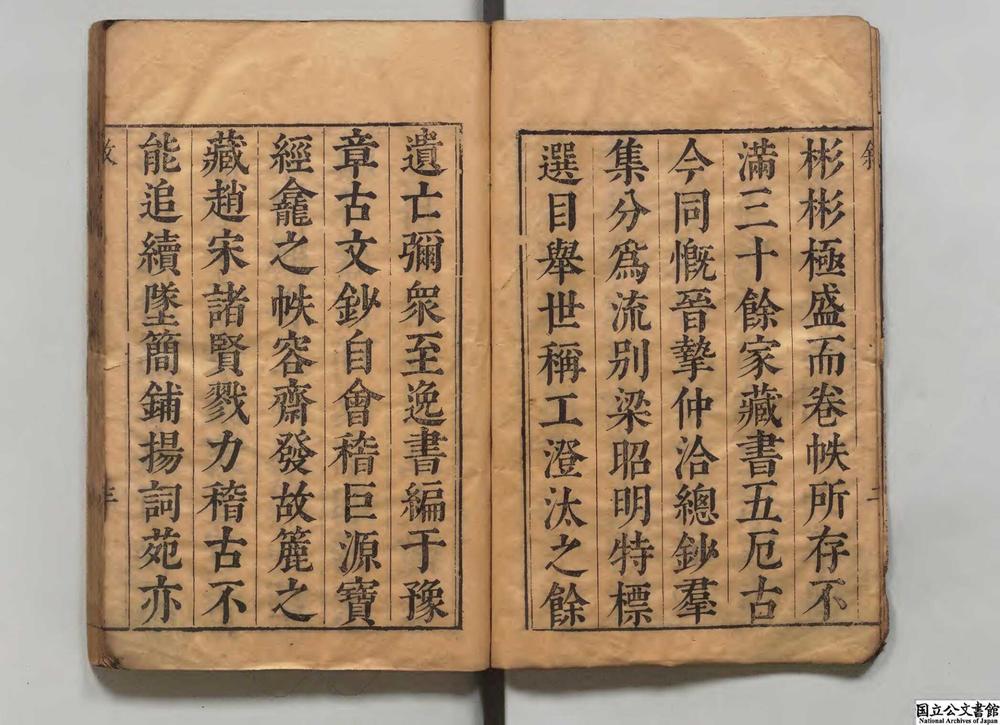 彬彬極盛而卷帙所存不
滿三十餘家藏書五厄古
今同慨晉摯仲洽總鈔羣
集分爲流别梁昭明特標
選目舉世稱工澄汰之餘
遺亡彌衆至逸書編于豫
章古文鈔自會稽巨源寶
經龕之帙容齋發故簏之
藏趙宋諸賢戮力稽古不
能追續墜簡鋪揚詞苑亦
国立公文書館
National Archives of Japan